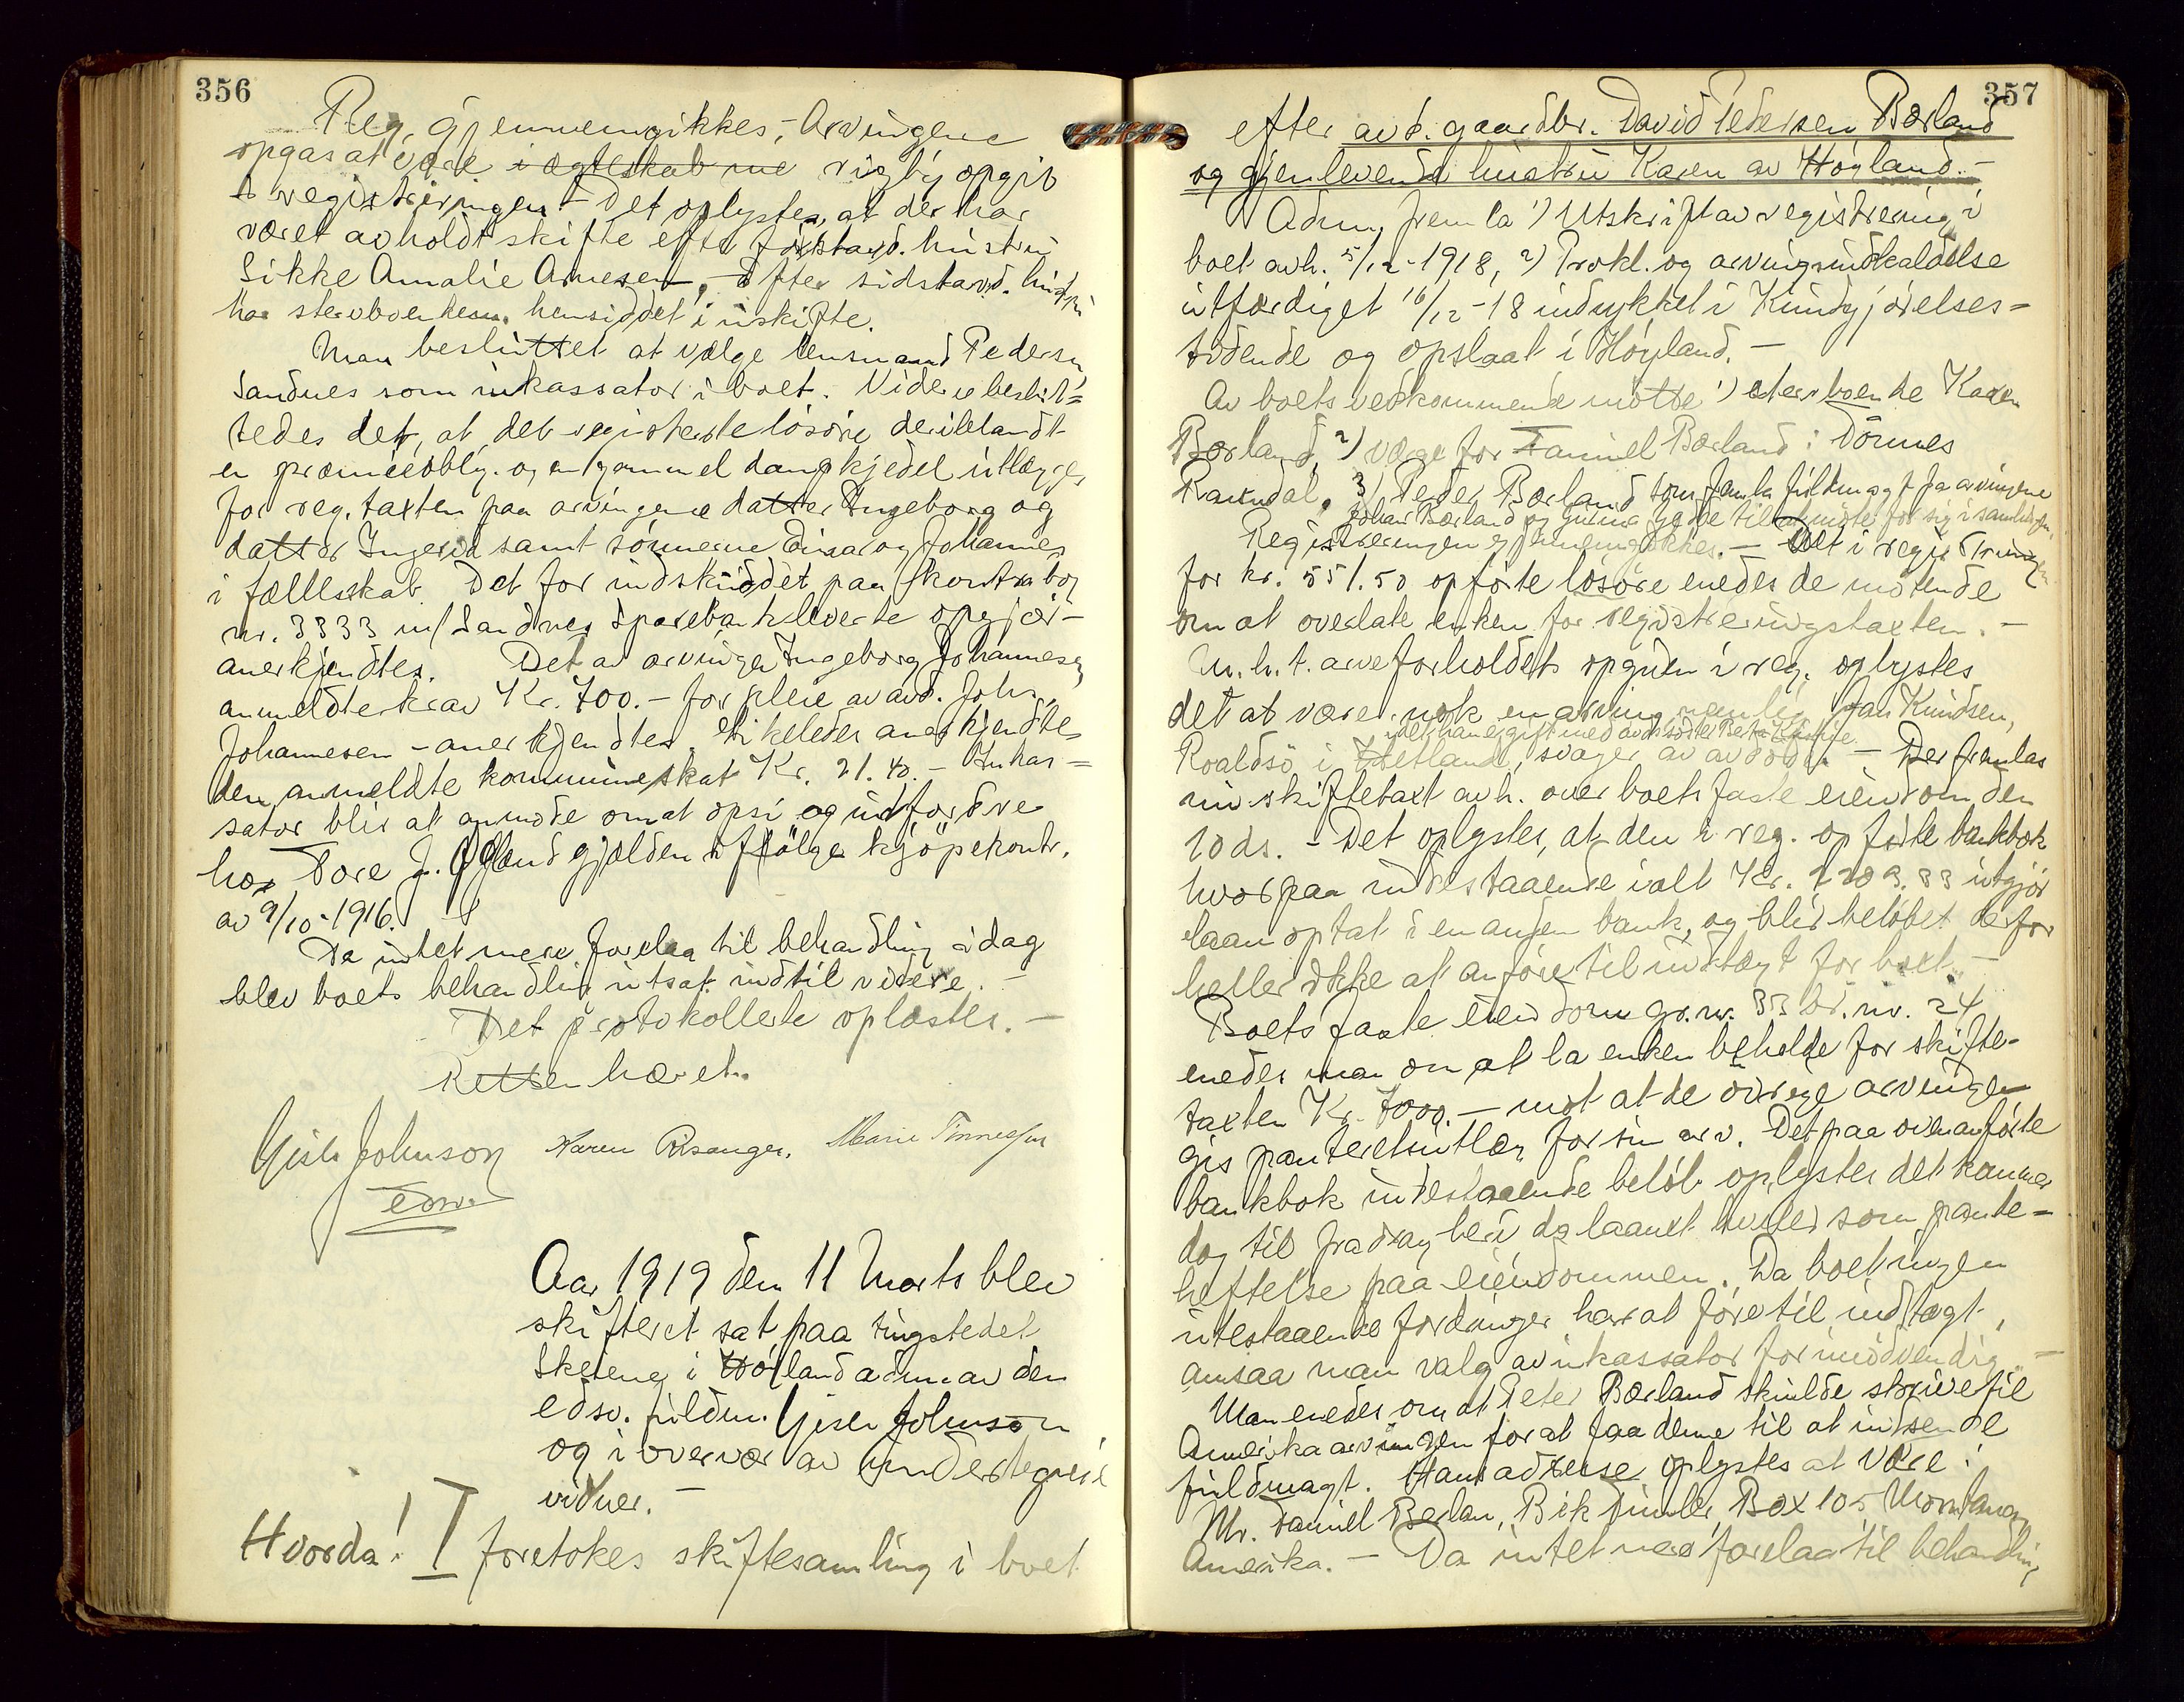 356
Reg. gjennemgikkes, Arvingene
opgas at være i ægteskab me rigtig opgit
i registreringen. Det oplystes, at der har
været avholdt skifte efter førstavd. hustru
Sikke Amalie Arnesen, efter sidstavd. hustru
har stervboenken hensiddet i uskifte.
Man besluttet at vælge lensmand Pedersen
Sandnes som inkassator i boet. Videre beslut=
tedes det, at det registrerte løsøre deriblandt
en præmieoblig. og en gammel dampkjedel utlægges
for reg. taxten paa arvingene datter Ingeborg og
datter Ingerid samt sønnerne Einar og Johannes
i fælleskab. Det for indskuddet paa kontrabog
nr. 3333 m/ Sandnes Sparebank leverte opgjør-
anerkjendtes. Det av arvingen Ingeborg Johannesen
anmeldte krav Kr. 700.- for pleie av avd. Johs.
Johannesen - anerkjendtes. Likeledes anerkjendtes
den anmeldte kommuneskat Kr. 21.40.- Inkas=
sator blir at anmode om at opsi og indfordre
hos Tore J. Øgland gjælden ifølge kjøpekontr.
av 9/10-1916.
Da intet mere forelaa til behandling idag
blev boets behandling utsat indtil videre. -
Det protokollerte oplæstes. -
Retten hævet.
Gisle Johnson Karen Risanger. Marie Tønnessen
edsv.
Aar 1919 den 11 Marts blev
skifteret sat paa tingstedet
Skeiene i Høyland adm. av den
edsv. fuldm. Gisle Johnson
og i overvær av undertegnede
vidner. -
Hvorda! I foretokes skiftesamling i boet
357
efter avd. gaardbr. David Pedersen Bærland
og gjenlevende hustru Karen av Høyland. -
Adm. fremla 1) Utskrift av registrering i
boet avh. 5/12-1918, 2) Prokl. og arvingsindkaldelse
utfærdiget 16/12-18 indrykket i Kundgjørelses=
tidende og opslaat i Høyland. -
Av boets vedkommende møtte 1) stervboende Karen
Bærland, 2) værge for Daniel Bærland: Tønnes
Ravndal, 3) Peder Bærland som fremla fuldmagt fra arvingene
Johan Bærland og Gurine Gjesse til at møte for sig i samlingen.
Registreringen gjennemgikkes. - Det i registreringen
for kr. 551.50 opførte løsøre enedes de møtende
om at overlate enken for registreringstaxten. -
M.h.t. arveforholdet opgiden i reg. oplystes
det at være nok en arving nemlig Jan Knudsen,
idet han er gift med avdødes søster Berta Kristine
Roaldsø i Hetland, svoger av avdøde. - Der fremlas
niv skiftetaxt avh. over boets faste eiendom den
10 ds. - Det oplystes, at den i reg. opførte bankbok
hvorpaa indestaaende ialt Kr. 2209.33 utgjør
laan optat i en anden bank, og blir beløbet derfor
heller ikke at anføre til indtægt for boet. -
Boets faste eiendom gr.nr. 33 br.nr. 24
enedes man om at la enken beholde for skifte-
taxten Kr. 7000.- mot at de øvrige arvinger
gis panteretsutlæg for sin arv. Det paa ovenanførte
bankbok indestaaende beløb oplystes det kommer
dog til fradrag heri da laanet hviler som pante=
heftelse paa eiendommen. Da boet ingen
utestaaende fordringer har at føre til indtægt,
ansaa man valg av inkassator for unødvendig. -
Man enedes om at Peter Bærland skulde skrive til
Amerikaarvingen for at faa denne til at indsende
fuldmagt. Hans adresse oplystes at være:
Mr. Daniel Berlan, Bik Timber, Box 105, Montana,
Amerika. - Da intet mere forelaa til behandling